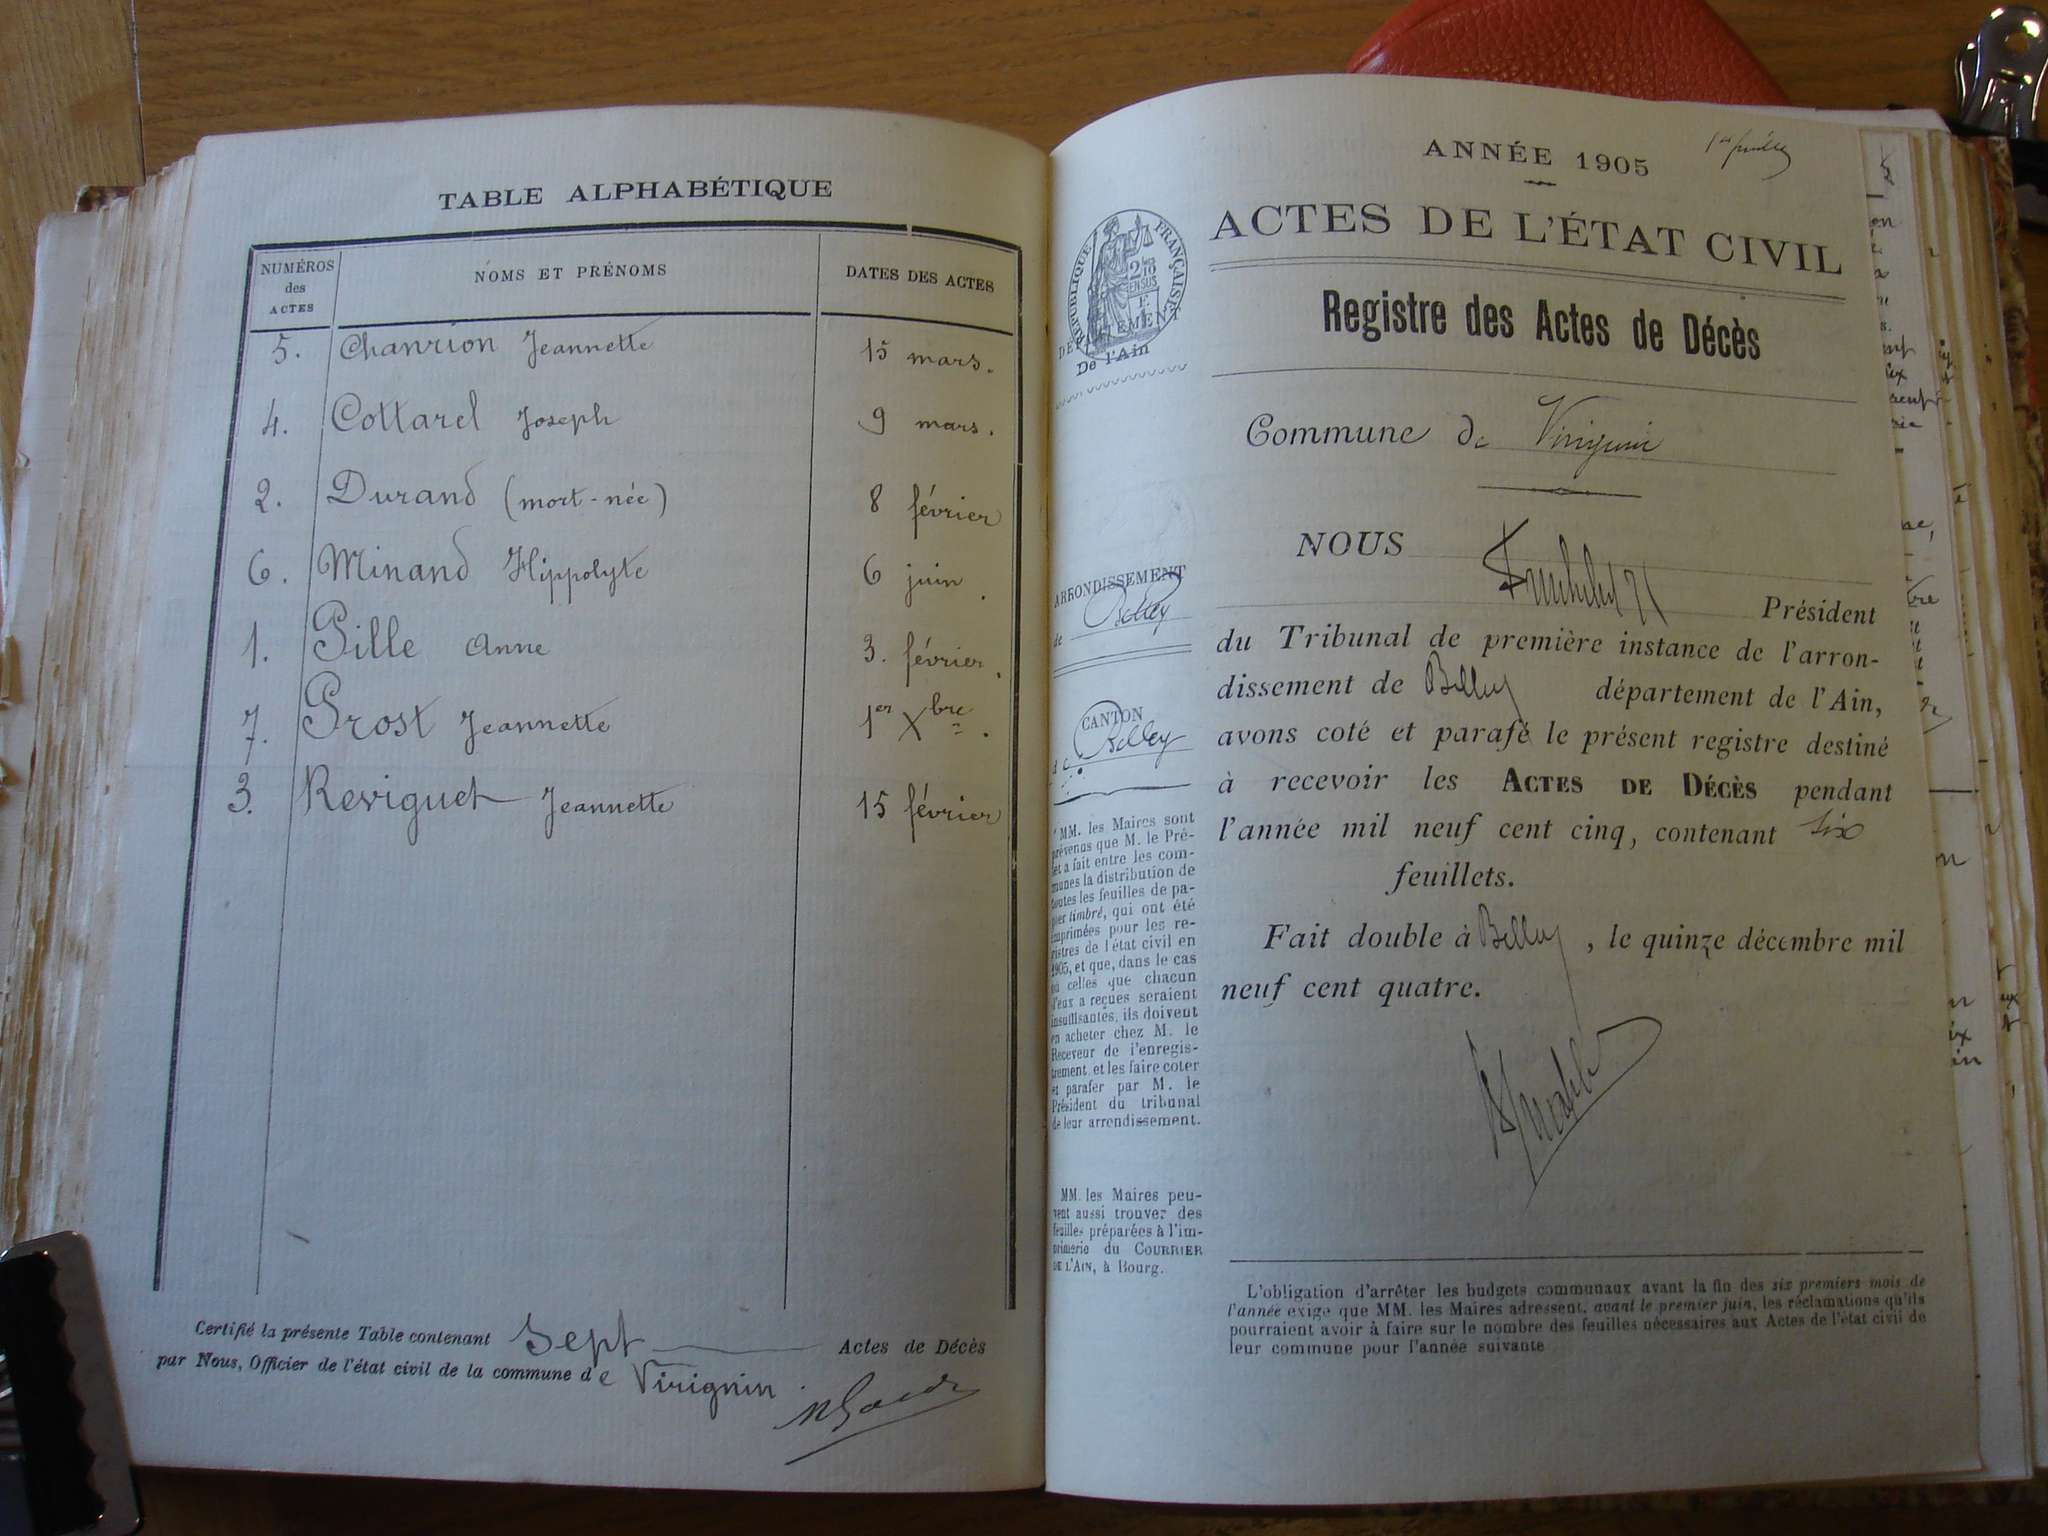 TABLE ALPHABÉTIQUE
NUMÉROS des ACTES NOMS ET PRÉNOMS DATES DES ACTES
5. Chanrion Jeannette 15 mars.
4. Cottarel Joseph 9 mars.
2. Durand (mort-née) 8 février
6. Minand Hippolyte 6 juin.
1. Pille Anne 3. février.
7. Prost Jeannette 1er Xbre.
3. Reviguet Jeannette 15 février
Certifié la présente Table contenant Sept Actes de Décès
par Nous, Officier de l'état civil de la commune de Virignin.
ANNÉE 1905
ACTES DE L'ÉTAT CIVIL
RÉPUBLIQUE FRANÇAISE
DÉPARTEMENT
De l'Ain
Registre des Actes de Décès
Commune de Virignin
ARRONDISSEMENT
de Belley
CANTON
de Belley
MM. les Maires sont
prévenus que M. le Pré-
fet a fait entre les com-
munes la distribution de
toutes les feuilles de pa-
pier timbré, qui ont été
imprimées pour les re-
gistres de l'état civil en
1905, et que, dans le cas
où celles que chacun
d'eux a reçues seraient
insuffisantes, ils doivent
en acheter chez M. le
Receveur de l'enregis-
trement, et les faire coter
et parafer par M. le
Président du tribunal
de leur arrondissement.
MM. les Maires peu-
vent aussi trouver des
feuilles préparées à l'im-
primerie du COURRIER
DE L'AIN, à Bourg.
NOUS
Président
du Tribunal de première instance de l'arron-
dissement de Belley département de l'Ain,
avons coté et parafé le présent registre destiné
à recevoir les ACTES DE DÉCÈS pendant
l'année mil neuf cent cinq, contenant six
feuillets.
Fait double à Belley, le quinze décembre mil
neuf cent quatre.
L'obligation d'arrêter les budgets communaux avant la fin des six premiers mois de
l'année exige que MM. les Maires adressent, avant le premier juin, les réclamations qu'ils
pourraient avoir à faire sur le nombre des feuilles nécessaires aux Actes de l'état civil de
leur commune pour l'année suivante